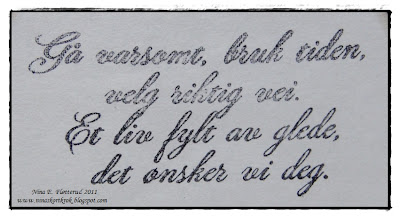 Gå varsomt, bruk tiden,
velg riktig vei.
Et liv fylt av glede,
det ønsker vi deg.
Nina E. Fløtterud 2011
www.ninaskortkrok.blogspot.com